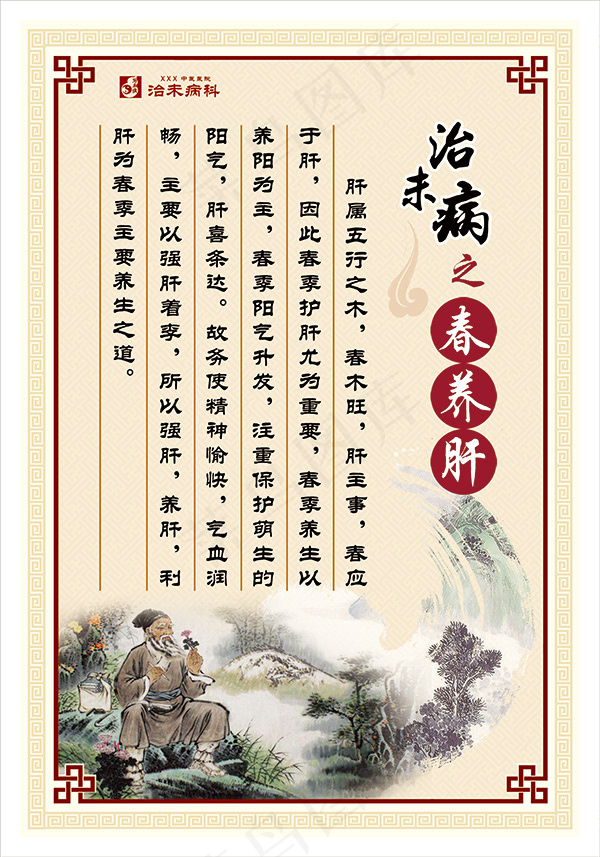 XXX 中医医院
治未病科
治未病之春养肝
肝属五行之木，春木旺，肝主事，春应
于肝，因此春季护肝尤为重要，春季养生以
养阳为主，春季阳气升发，注重保护萌生的
阳气，肝喜条达。故务使精神愉快，气血润
畅，主要以强肝着李，所以强肝，养肝，利
肝为春季主要养生之道。